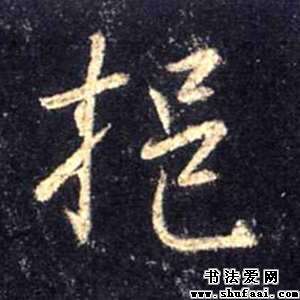 挹
书法爱网
www.shufaai.com